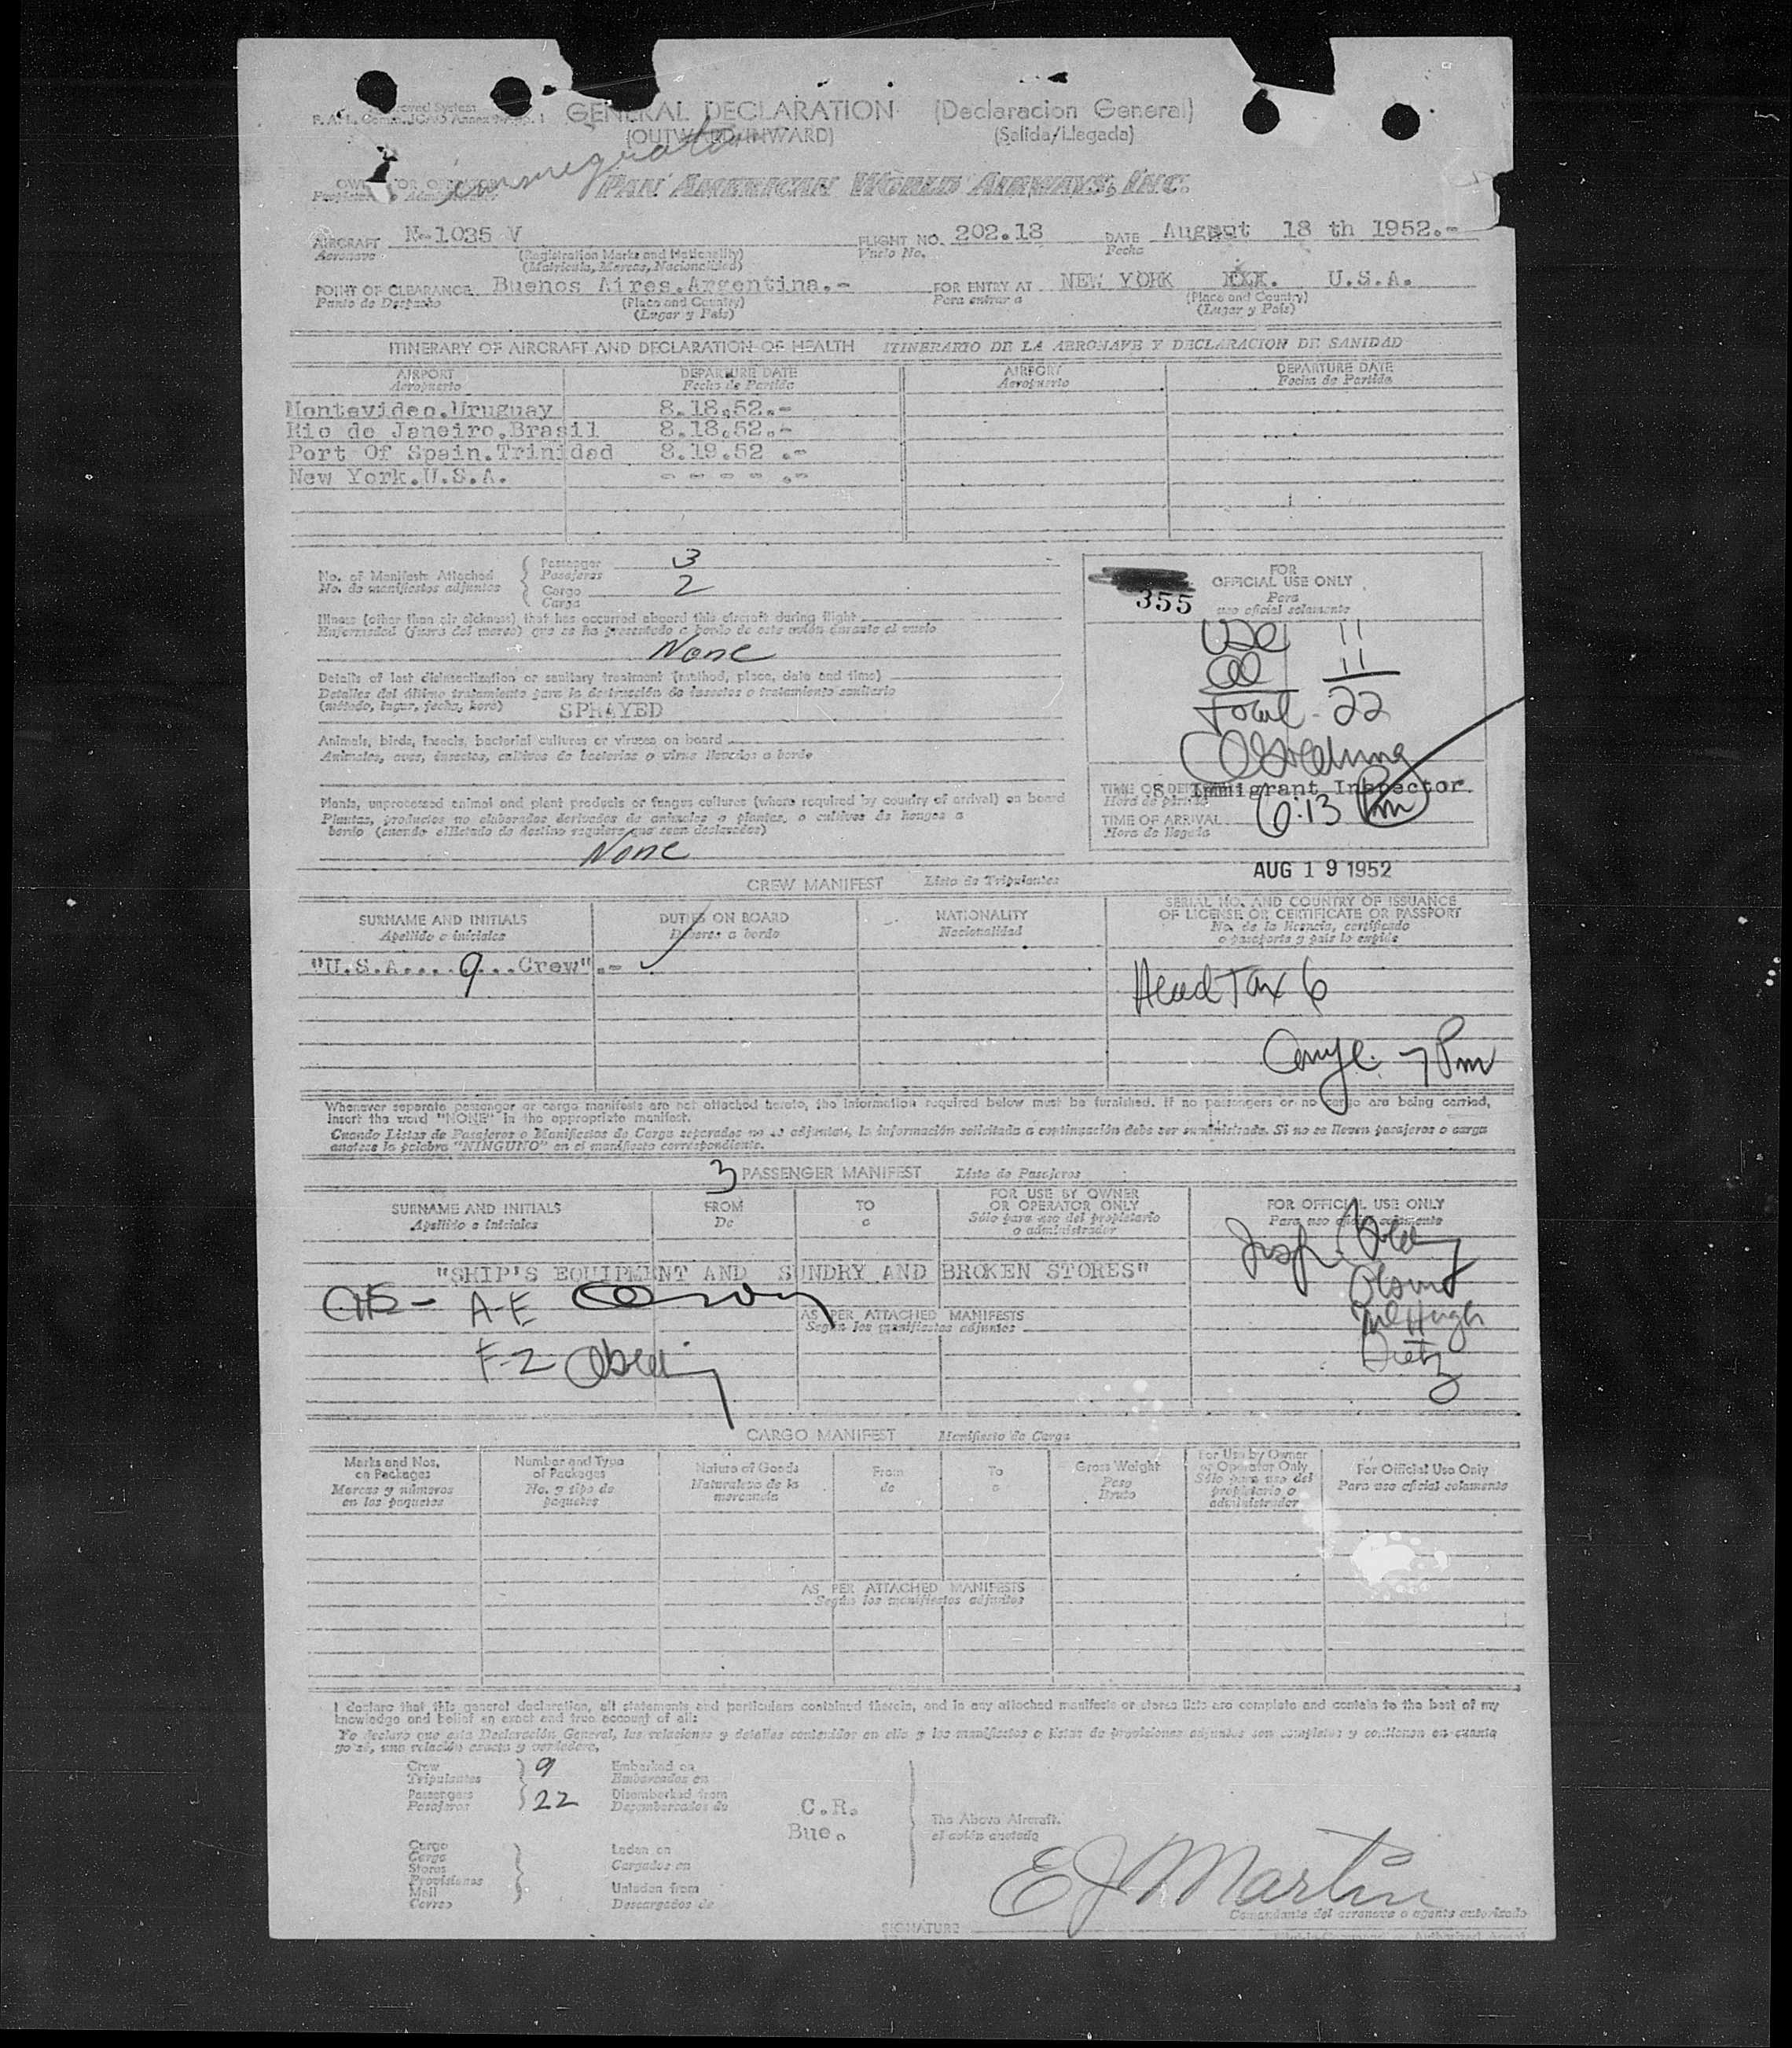 GENERAL DECLARATION (Declaracion General)
(OUTWARD/INWARD) (Salida/Llegada)
PAN AMERICAN WORLD AIRWAYS, INC.
AIRCRAFT N-1035 V FLIGHT NO. 202.18 DATE August 18 th 1952.-
Aeronave (Registration Marks and Nationality) Vuelo No. Fecha
(Matricula, Marcas, Nacionalidad)
POINT OF CLEARANCE Buenos Aires.Argentina.- FOR ENTRY AT NEW YORK U.S.A.
Punto de Despacho (Place and Country) Para entrar a (Place and Country)
(Lugar y País) (Lugar y País)
ITINERARY OF AIRCRAFT AND DECLARATION OF HEALTH ITINERARIO DE LA AERONAVE Y DECLARACION DE SANIDAD
AIRPORT DEPARTURE DATE AIRPORT DEPARTURE DATE
Aeropuerto Fecha de Partida Aeropuerto Fecha de Partida
Montevideo.Uruguay 8.18.52.-
Rio de Janeiro.Brasil 8.18.52.-
Port Of Spain.Trinidad 8.19.52 .-
New York.U.S.A. - - - - .-
No. of Manifests Attached Passenger 3
No. de manifiestos adjuntos Pasajeros
Cargo 2
Carga
Illness (other than air sickness) that has occurred aboard this aircraft during flight
Enfermedad (fuera del mareo) que se ha presentado a bordo de este avión durante el vuelo
None
Details of last disinsectization or sanitary treatment (method, place, date and time)
Detalles del último tratamiento para la destrucción de insectos o tratamiento sanitario
(método, lugar, fecha, hora) SPRAYED
Animals, birds, insects, bacterial cultures or viruses on board
Animales, aves, insectos, cultivos de bacterias o virus llevados a bordo
Plants, unprocessed animal and plant products or fungus cultures (where required by country of arrival) on board
Plantas, productos no elaborados derivados de animales o plantas, o cultivos de hongos a
bordo (cuando el Estado de destino requiere que sean declarados)
None
FOR
OFFICIAL USE ONLY
Para
uso oficial solamente
355
USC 11
11
Total - 22
S. Immigrant Inspector.
Hora de partida
TIME OF ARRIVAL 6:13 Pm
Hora de llegada
AUG 19 1952
CREW MANIFEST Lista de Tripulantes
SURNAME AND INITIALS DUTIES ON BOARD NATIONALITY SERIAL NO. AND COUNTRY OF ISSUANCE
OF LICENSE OR CERTIFICATE OR PASSPORT
Apellido e iniciales Deberes a bordo Nacionalidad No. de la licencia, certificado
o pasaporte y país lo expide
"U.S.A... 9 ...Crew".-
Head Tax 6
7 Pm
Whenever separate passenger or cargo manifests are not attached hereto, the information required below must be furnished. If no passengers or no cargo are being carried,
insert the word "NONE" in the appropriate manifest.
Cuando Listas de Pasajeros o Manifiestos de Carga separados no se adjuntan, la información solicitada a continuación debe ser suministrada. Si no se llevan pasajeros o carga
anótese la palabra "NINGUNO" en el manifiesto correspondiente.
3 PASSENGER MANIFEST Lista de Pasajeros
SURNAME AND INITIALS FROM TO FOR USE BY OWNER
OR OPERATOR ONLY FOR OFFICIAL USE ONLY
Apellido e iniciales De a Sólo para uso del propietario
o administrador Para uso oficial solamente
"SHIP'S EQUIPMENT AND SUNDRY AND BROKEN STORES"
A-E
AS PER ATTACHED MANIFESTS
Según los manifiestos adjuntos
F-Z
McHugh
Dietz
CARGO MANIFEST Manifiesto de Carga
Marks and Nos.
on Packages
Marcas y números
en los paquetes
Number and Type
of Packages
No. y tipo de
paquetes
Nature of Goods
Naturaleza de la
mercancía
From
de
To
a
Gross Weight
Peso
Bruto
For Use by Owner
or Operator Only
Sólo para uso del
propietario o
administrador
For Official Use Only
Para uso oficial solamente
AS PER ATTACHED MANIFESTS
Según los manifiestos adjuntos
I declare that this general declaration, all statements and particulars contained therein, and in any attached manifests or stores lists are complete and contain to the best of my
knowledge and belief an exact and true account of all:
Yo declaro que esta Declaración General, las relaciones y detalles contenidos en ella y los manifiestos o listas de provisiones adjuntos son completos y contienen en cuanto
yo sé, una relación exacta y verdadera.
Crew 9 Embarked on
Tripulantes Embarcados en
Passengers 22 Disembarked from
Pasajeros Desembarcados de
C.R.
Bue.
The Above Aircraft.
el avión anotado
Cargo
Carga
Stores
Provisiones
Mail
Correo
Laden on
Cargados en
Unladen from
Descargados de
E J Martin
SIGNATURE Comandante del aeronave o agente autorizado